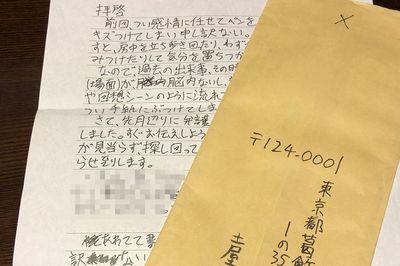 拝啓
前回つい感情に任せてペンを
キズつけてしまい申し訳ない。
すと、房中を立ち歩き回たり、わず
みつけたりして気分を落ちつ
なので、過去の出来事、その時
(場面)が脳内ないし、
や回想シーンのように流れ
つい手紙にぶつけてしま
さて、先月辺りに弁護
しました。すぐお伝えしよう
が見当らず、探し回って
らせ到します。
〒124-0001
東京都葛飾
1の35
土屋